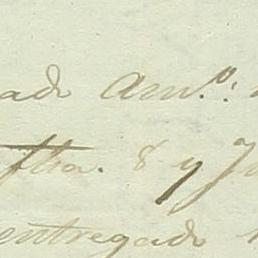 ado Am.º:
ftha. 8 y Ju
entregado